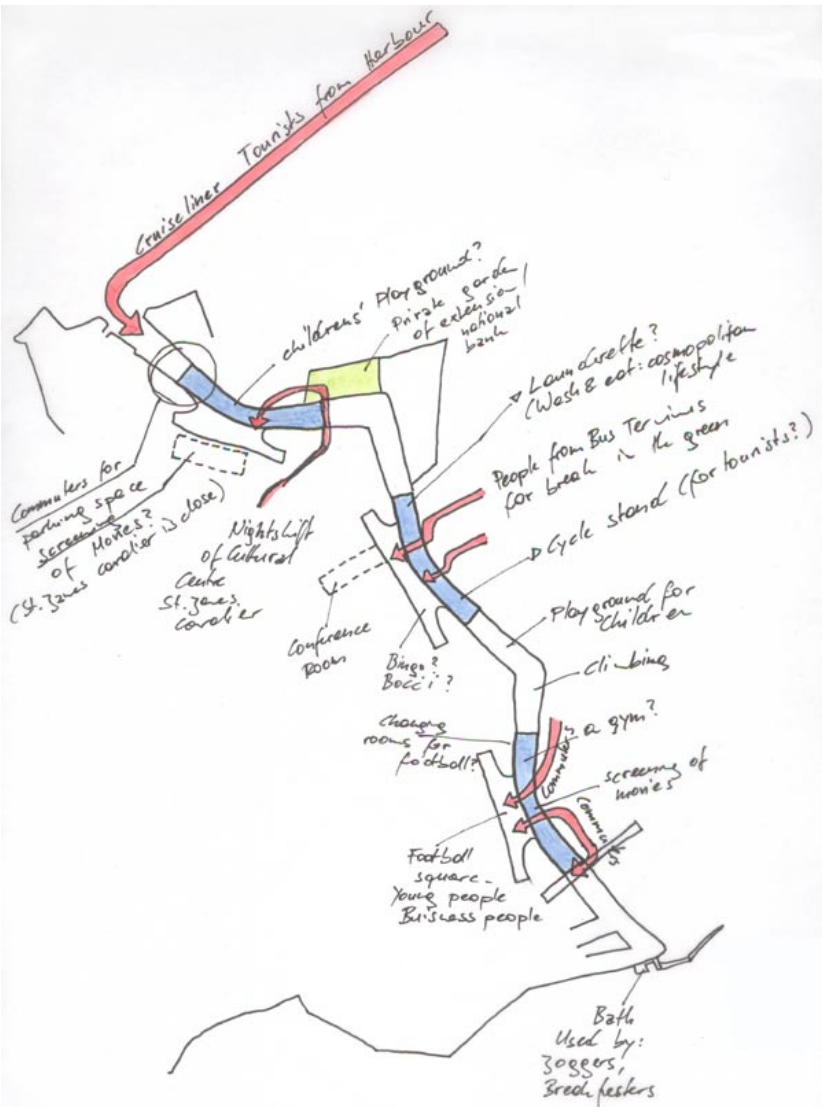 Cruiseliner Tourists from Harbour
childrens' Playground?
Private garden
of extension
national
bank
Launderette?
(Wash & eat: cosmopolitan
lifestyle
People from Bus Terminus
for break in the green
Cycle stand (for tourists?)
Commuters for
parking space
screening
of Movies?
(St. James cavalier is close)
Nightshift
of Cultural
Centre
St. James
Cavalier
Conference
Room
Bingo?
Bocci?
Playground for
Children
Climbing
Changing
rooms for
football?
a gym?
Commuters
screening of
movies
Commuters
Football
square -
Young people
Buisness people
Bath
Used by:
Joggers,
Breakfasters